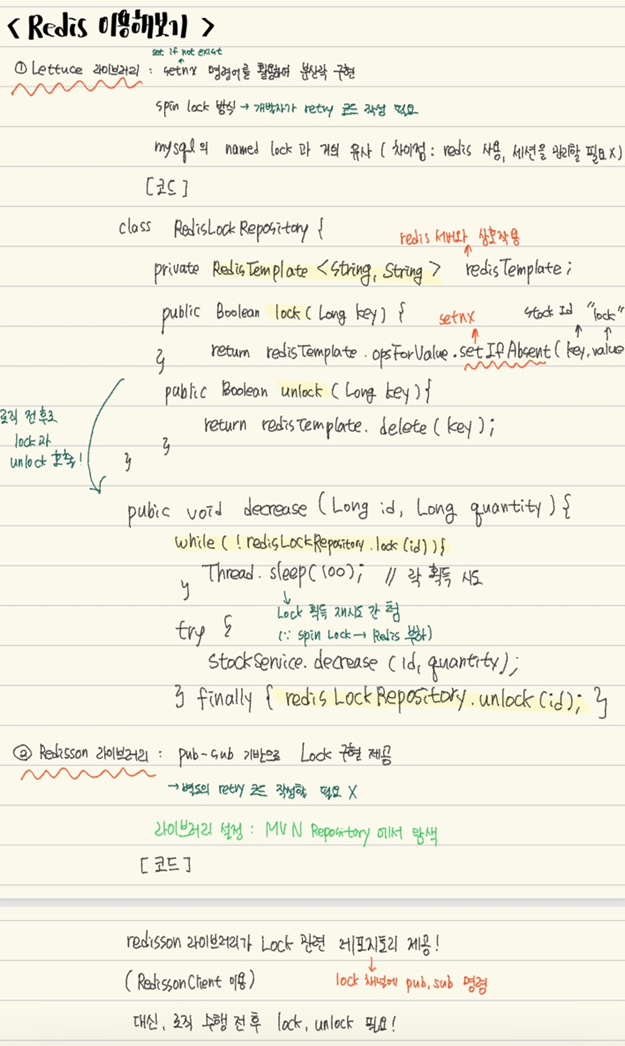 < Redis 이용해보기 >
set if not exist
① Lettuce 라이브러리 : setnx 명령어를 활용하여 분산락 구현
spin lock 방식 → 개발자가 retry 코드 작성 필요
mysql의 named lock과 거의 유사 ( 차이점 : redis 사용, 세션을 관리할 필요 X)
[코드]
class RedisLockRepository {
redis 서버와 상호작용
private RedisTemplate <String, String> redisTemplate;
public Boolean lock( Long key) {
setnx
stock Id "lock"
return redisTemplate.opsForValue.setIfAbsent(key, value
}
public Boolean unlock (Long key){
return redisTemplate. delete(key);
}
}
로직 전후로
lock과
unlock 호출!
pubic void decrease (Long id, Long quantity){
while( ! redisLockRepository.lock(id)){
Thread. sleep(100); // 락 획득 시도
}
Lock 획득 재시도 간 텀
(∵ spin Lock → Redis 부하)
try {
stockService.decrease (id, quantity);
} finally { redisLockRepository.unlock(id); }
② Redisson 라이브러리 : pub-sub 기반으로 Lock 구현 제공
→ 별도의 retry 코드 작성할 필요 X
라이브러리 설정 : MVN Repository 에서 탐색
[코드]
redisson 라이브러리가 Lock 관련 레포지토리 제공!
(RedissonClient 이용)
lock 채널에 pub, sub 명령
대신, 로직 수행 전후 lock, unlock 필요!